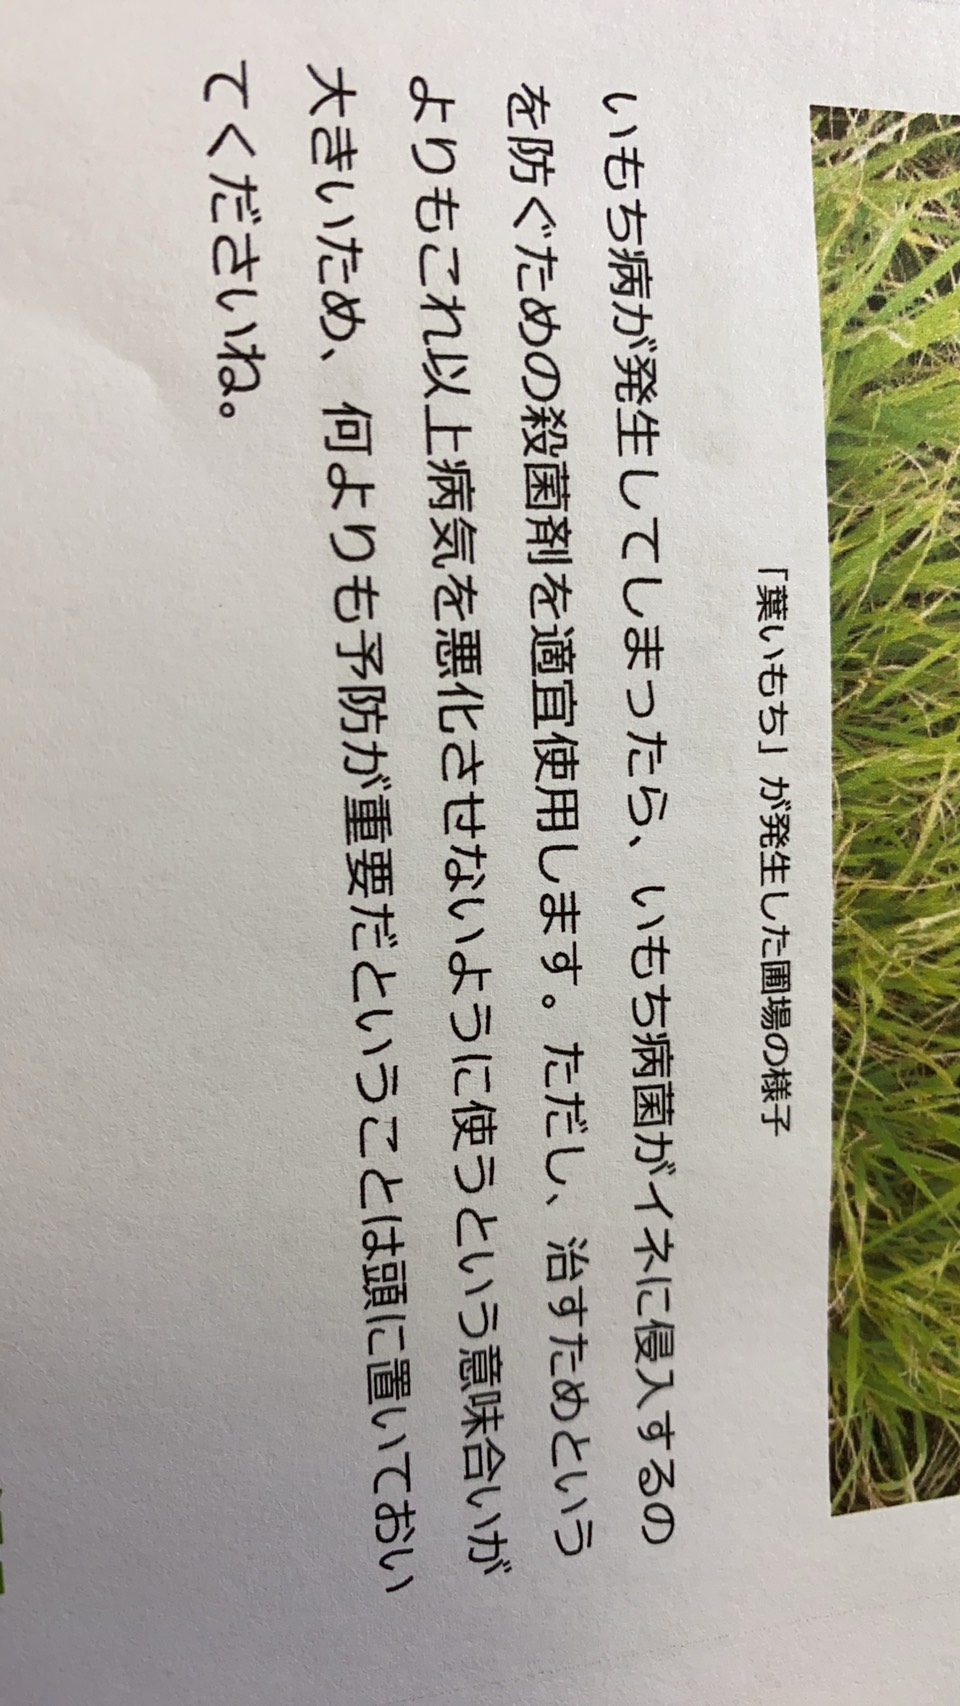 「葉いもち」が発生した圃場の様子
いもち病が発生してしまったら、いもち病菌がイネに侵入するの
を防ぐための殺菌剤を適宜使用します。ただし、治すためという
よりもこれ以上病気を悪化させないように使うという意味合いが
大きいため、何よりも予防が重要だということは頭に置いておい
てくださいね。